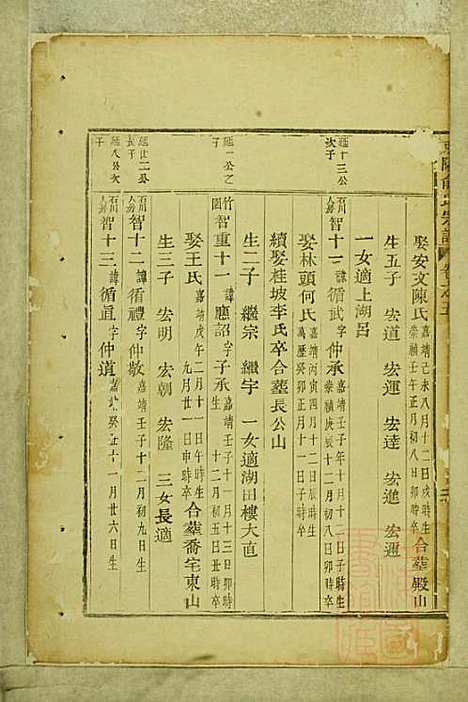 娶安文陳氏 嘉靖己未八月十二日戌時生 崇禎壬午正月初八日卯時卒 合葬殿山
生五子 宏道 宏運 宏達 宏進 宏遇
一女適上湖呂
延十三公次子
智十一 諱循武字仲承 嘉靖壬子年十月十二日子時生 崇禎庚辰十二月初八日卯時卒
娶林頭何氏 嘉靖丙寅四月十二日辰時生 萬歷癸卯正月十一日子時卒
續娶桂坡李氏卒合葬長公山
生二子 繼宗 繼宇 一女適湖田樓大直
延一公之子
竹園智重十一 諱應詔字子承 嘉靖壬子十一月十三日卯時生 十二月初五日丑時卒
娶王氏 嘉靖戊午二月十一日午時生 九月廿一日申時卒 合葬喬宅東山
生三子 宏明 宏朝 宏隆 三女長適
延廿二公長子
石川智十二 諱循禮字仲敬 嘉靖壬子十二月初九日生
延八公次子
石川智十三 諱循直字仲道 嘉靖癸丑十一月廿六日生